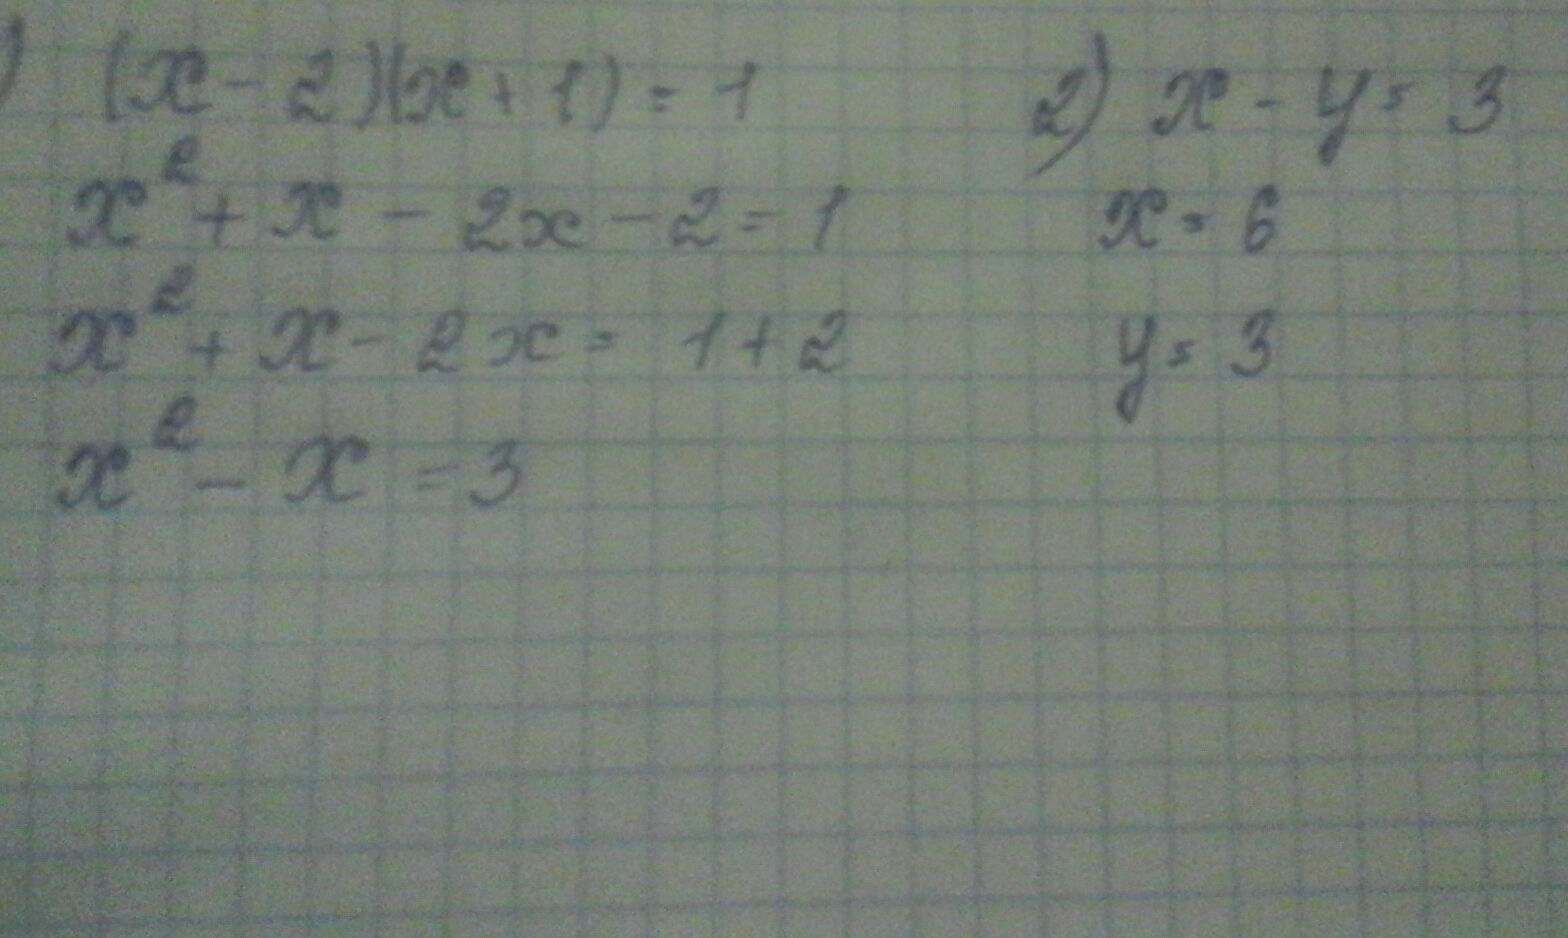 ) (x - 2)(x + 1) = 1
x² + x - 2x - 2 = 1
x² + x - 2x = 1 + 2
x² - x = 3
2) x - y = 3
x = 6
y = 3